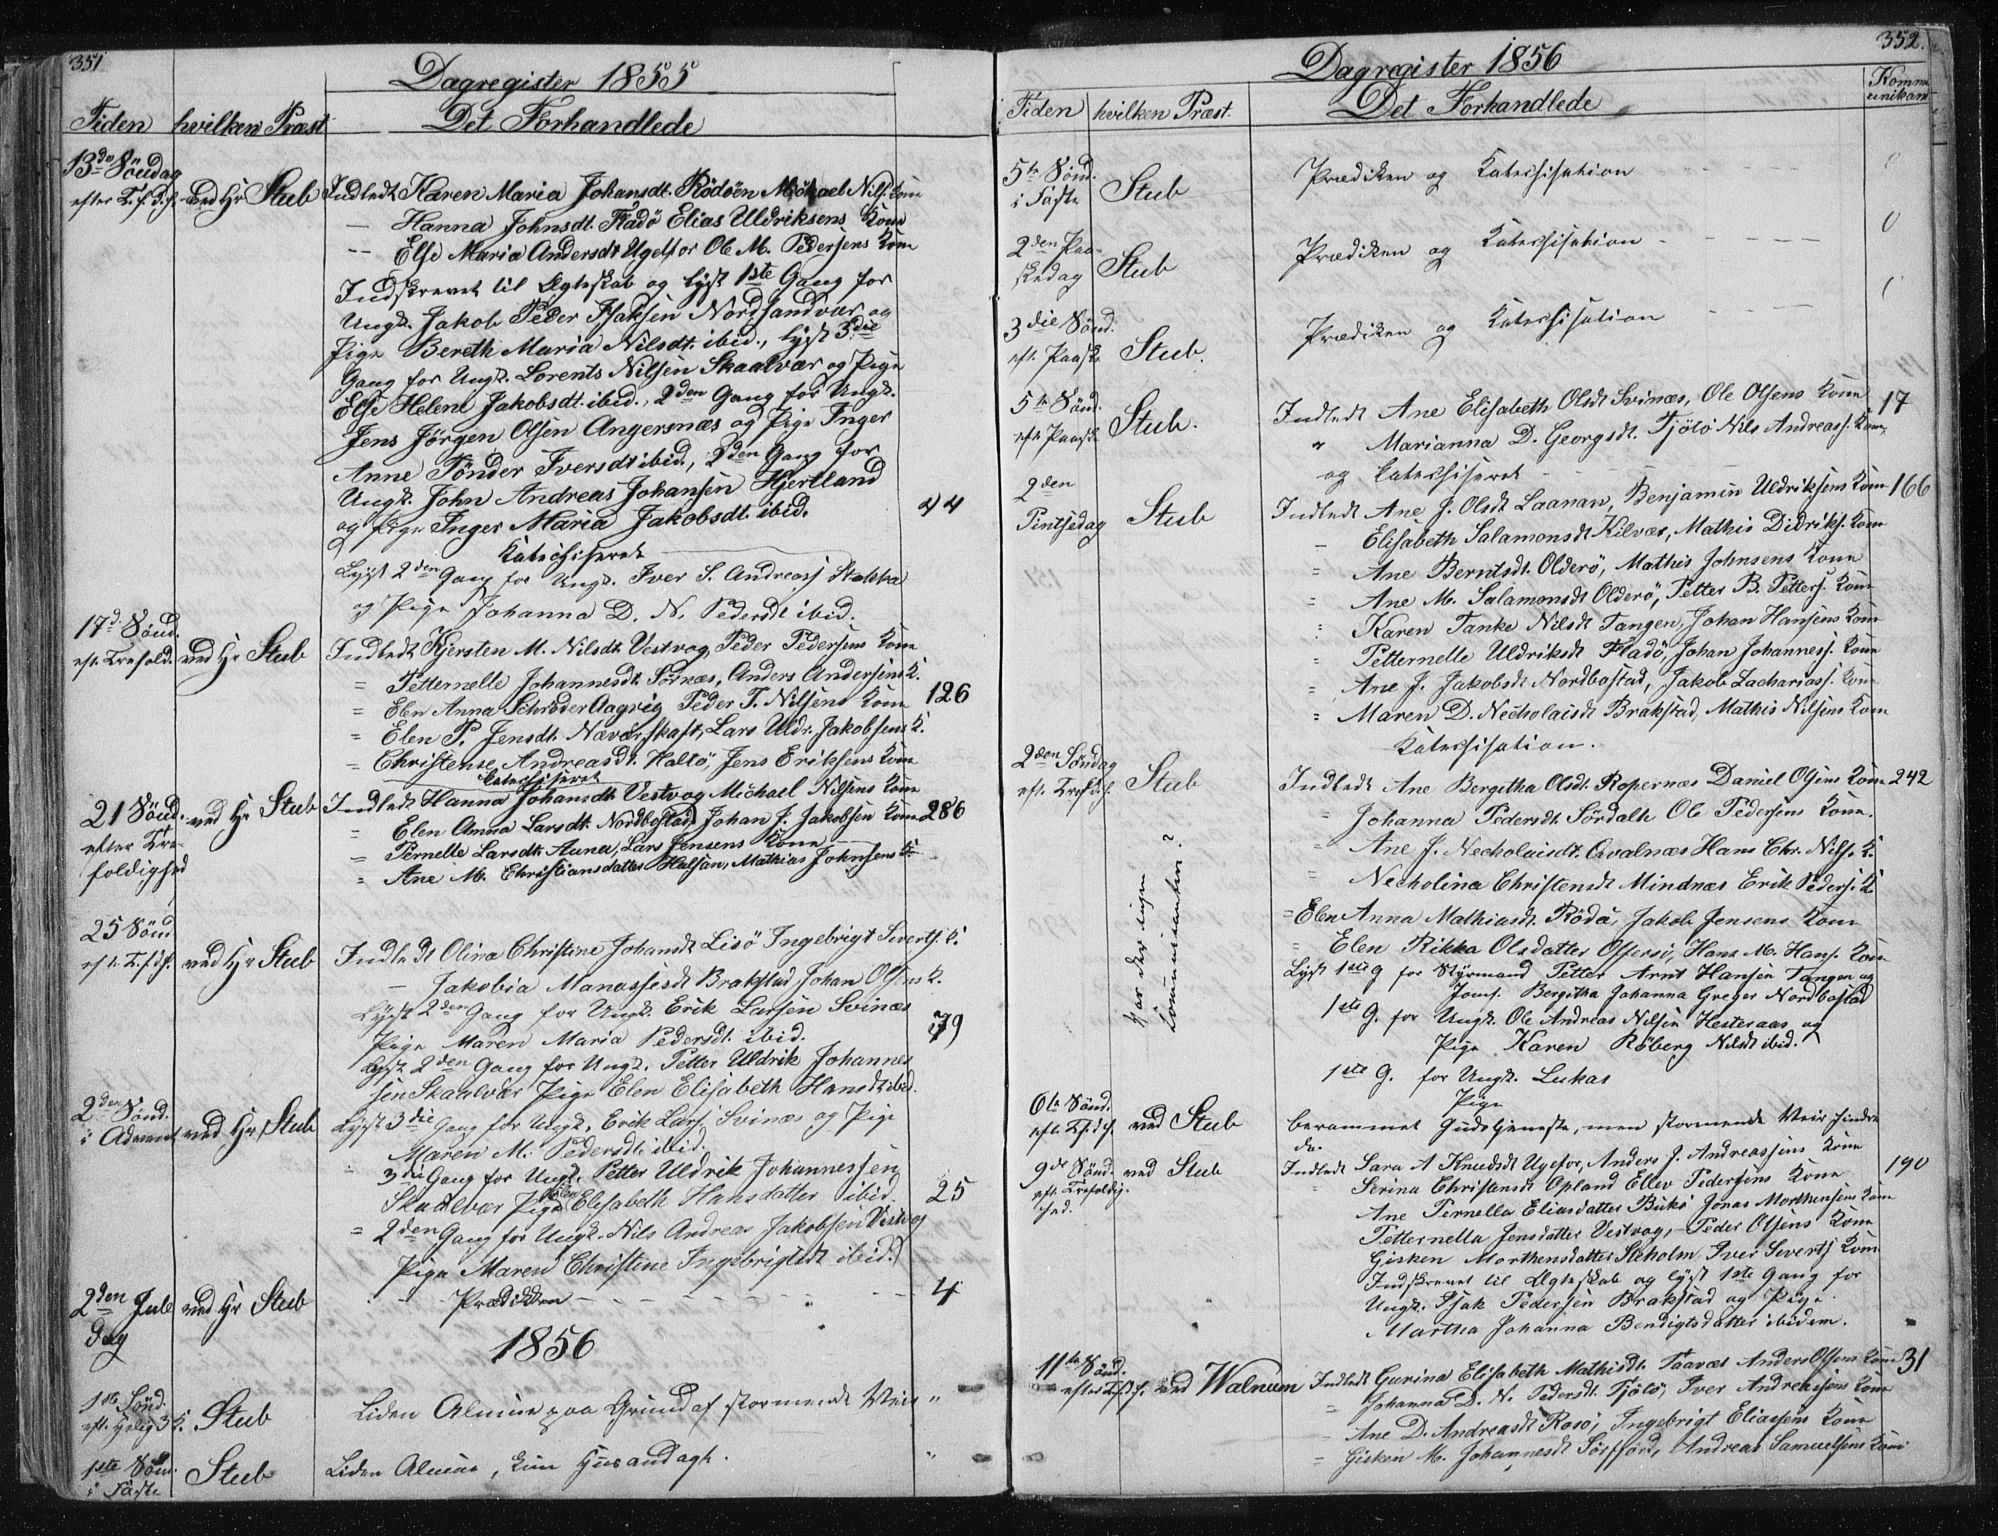 351
Dagregister 1855
Tiden hvilken Præst
Det Forhandlede
13de Söndag
efter Tr.f.d.h. ved Hr Stub Indledt Karen Maria Johansdt. Rödöen Michael Nils. Kone
— Hanna Johnsdt. Fladö Elias Uldriksens Kone
-- Else Maria Andersdt Ugelfor Ole M. Pedersens Kone
Indskrevet til Ægteskab og lyst 1ste Gang for
Ungk. Jakob Peder Isaksen Nordsandvær og
Pige Bereth Maria Nilsdt. ibid., lyst 3die
Gang for Ungk. Lorents Nilsen Skaalvær og Pige
Else Helene Jakobsdt. ibid., 2den Gang for Ungk.
Jens Jörgen Olsen Angersnæs og Pige Inger
Anne Tönder Iversdt ibid., 2den Gang for
Ungk. John Andreas Johansen Hjertland
og Pige Inger Maria Jakobsdt. ibid. 44
Katechiseret
Lyst 2den Gang for Ungk. Iver S. Andreass Stokka
og Pige Johanna D. N. Pedersdt ibid.
17d. Sönd.
eft. Trefold. ved Hr Stub Indledt Kjersten M. Nilsdt. Vestvog Peder Pedersens Kone
= Petternelle Johannesdt. Sörnæs, Anders Andersens K.
= Elen Anna Schröder Aagvig Peder T. Nilsens Kone 126
= Elen P. Jensdt. Næverskaft, Lars Uldr. Jakobsens K.
= Christense Andreasdt. Haltö, Jens Eriksens Kone
Katechiseret
21 Sönd. ved Hr Stub Indledt Hanna Johansdt. Vestvog Michael Nilsens Kone
efter Tre-
foldighed
= Elen Anna Larsdt. Nordbostad Johan J. Jakobsen Kone 286
= Pernelle Larsdt. Aunet, Lars Jensens Kone
= Ane M. Christiansdatter Halsan, Mathias Johnsens K
25 Sönd
eft. T.f.d.h. ved Hr Stub Indledt Olina Christine Johansdt Lisö Ingebrigt Sverts. K.
— Jakobia Manassesdt Brakstad Johan Olsens K.
Lyst 2den Gang for Ungk. Erik Larsen Svinæs
Pige Maren Maria Pedersdt. ibid. 79
Lyst 2den Gang for Ungk. Petter Uldrik Johannes
sen Skaalvær Pige Elen Elisabeth Hansdt. ibid.
2den Sönd.
i Advent ved Hr Stub Lyst 3die Gang for Ungk. Erik Lars. Svinæs og Pige
Maren M. Pedersdt. ibid.
3die Gang for Ungk. Petter Uldrik Johannessen
Skaalvær Pige Elen Elisabeth Hansdatter ibid. 25
= 2den Gang for Ungk. Nils Andreas Jakobsen Vestvog
Pige Maren Christine Ingebrigtsdt ibid.
2den Jule
dag ved Hr Stub Prædiken 4
1856
1ste Sönd.
eft. Hellig 3 K. Stub Liden Almue paa Grund af stormende Veir "
1ste Sönd.
i Faste Stub Liden Almue, kun Husandagt. "
352.
Dagregister 1856
Tiden hvilken Præst.
Det Forhandlede
Komm
unikant
5te Sönd.
i Faste Stub Prædiken og Katechisation 0
2den Paa-
skedag Stub Prædiken og Katechisation 0
3die Sönd.
eft. Paaske Stub. Prædiken og Katechisation
5te Sönd.
eft. Paaske Stub. Indledt Ane Elisabeth Olsdt Svinæs, Ole Olsens Kone 17
" Marianna D. Georgsdt. Tjötö Nils Andreass. Kone
og Katechiseret
2den
Pintsedag Stub Indledt Ane J. Olsdt Laanan, Benjamin Uldriksens Kone 166
— Elisabeth Salamonsdt Kilvær, Mathis Didriks. Kone
= Ane Berntsdt. Olderö, Mathis Johnsens Kone
= Ane M. Salamonsdt Olderö, Petter B. Petters. Kone
: Karen Tanke Nilsdt Tangen, Johan Hansens Kone
= Petternelle Uldriksdt Fladö, Johan Johanness. Kone
= Ane J. Jakobsdt Nordbostad, Jakob Zachariass. Kone
= Maren D. Necholaisdt Brakstad, Mathis Nilsens Kone
Katechisation.
2den Söndag
eft. Tref.d.h. Stub Indledt Ane Bergitha Olsdt. Ropernæs Daniel Olsens Kone 242
Johanna Pedersdt. Sördalh Ole Pedersens Kone.
= Ane J. Necholaisdt. Qvalnæs Hans Chr. Nils. K.
= Necholina Christensdt Mindnæs Erik Peders. K
= Elen Anna Mathiasdt. Rödö, Jakob Jensens Kone
= Elen Rikka Olsdatter Offersö, Hans M. Hans. Kone
Lyst 1ste G for Styrmand Petter Arnt Hansen Tangen og
Jomf. Bergitha Johanna Greger Nordbostad
1ste G. for Ungk. Ole Andreas Nilsen Hesteraas og
Pige Karen Röberg Nilsdt ibid.
1ste G. for Ungk. Lukas
Pige
Har der ingen
Kommunikanter?
6te Sönd.
eft. Tr.f.d.h. ved Stub berammet Gudstjeneste, men stormende Veir hindre
de.
9de Sönd. ved Stub
eft. Trefoldig-
hed.
Indledt Sara A Knudsdt Ugefor, Anders J. Andreassens Kone 190
Serina Christensdt Opland Ellev Pedersens Kone
Ane Pernella Eliasdatter Bukö Jonas Morthensens Kone
Petternella Jensdatter Vestvog, Peder Olsens Kone
Gisken Morthensdatter Stokholm Iver Sverts Kone
Indskrevet til Ægteskab og lyst 1ste Gang for
Ungk. Isak Pedersen Brakstad og Pige
Martha Johanna Bendigtsdatter ibidem.
11te Sönd.
efter T.f.d.h. ved Walnum Indledt Gurina Elisabeth Mathisdt. Taaræs Anders Olsens Kone 31
= Johanna D. N. Pedersdt. Tjötö, Iver Andreasens Kone
- Ane D. Andreasdt Rosö, Ingebrigt Eliassens Kone
= Gisken M. Johannesdt Sörfjord, Andreas Samuelsens Kone